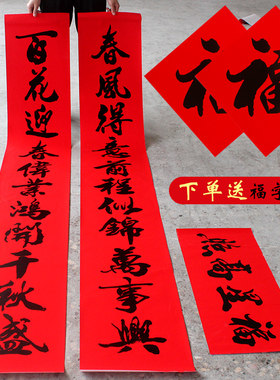 春風得意前程似錦萬事興
百花迎春偉業鴻開千秋盛
福
下单送福字
福星高照